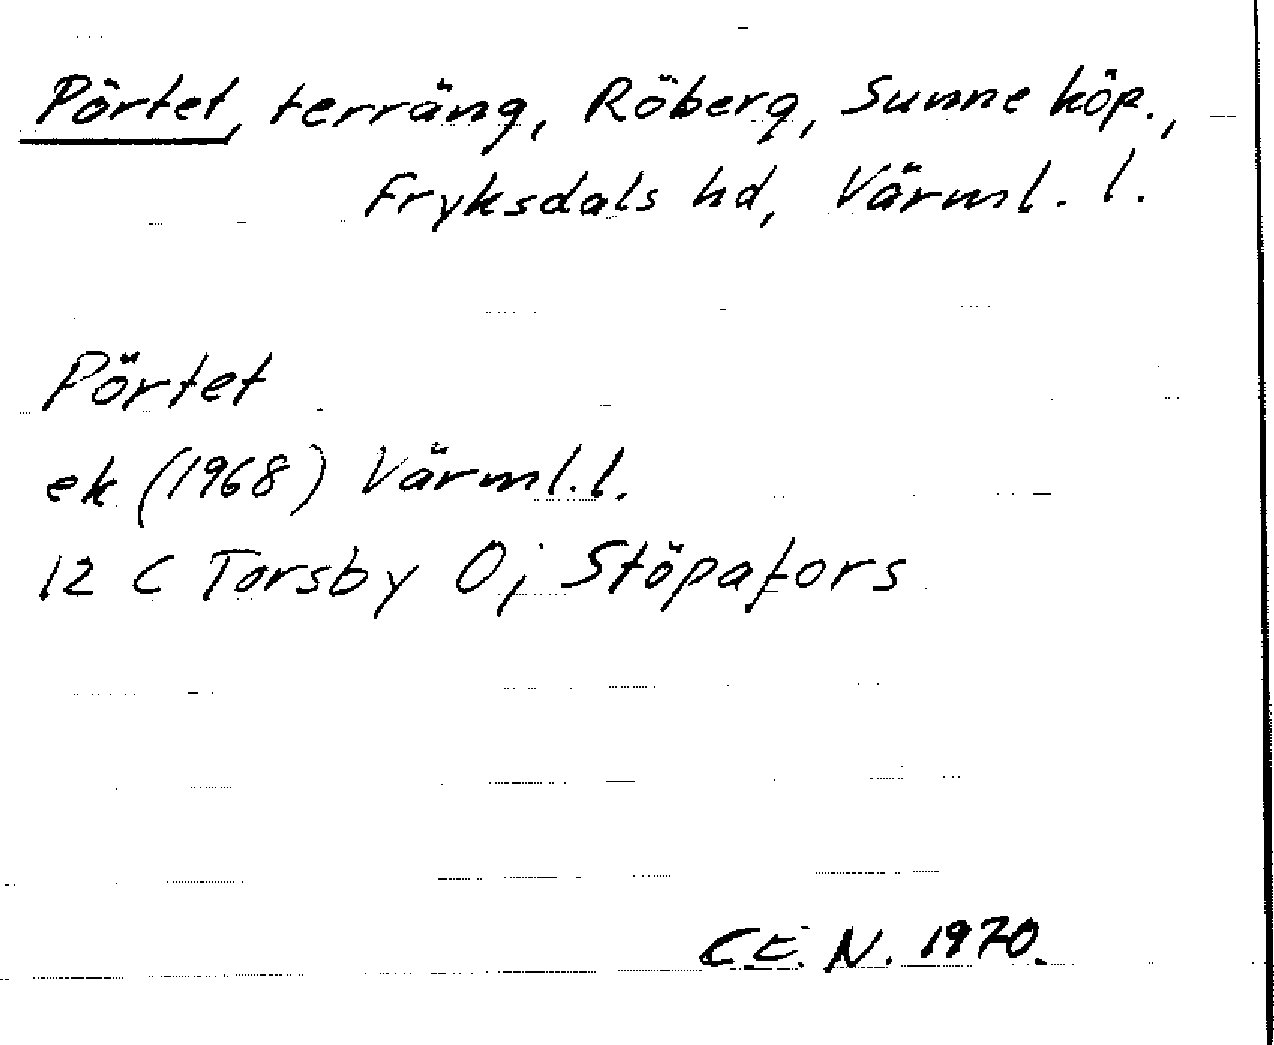 Pörtet, terräng, Röberg, Sunne köp.,
Fryksdals hd, Värml. l.
Pörtet
ek (1968) Värml. l.
12 C Torsby O; Stöpafors
C.E. N. 1970.